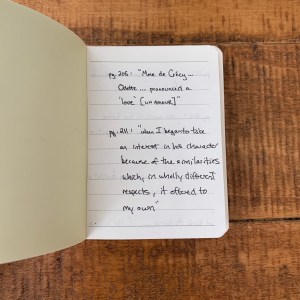 pg. 206: "Mme. de Crécy...
Odette ... pronounced a
'love' [un amour]"
pg. 211: "when I began to take
an interest in his character
because of the similarities
which, in wholly different
respects, it offered to
my own"